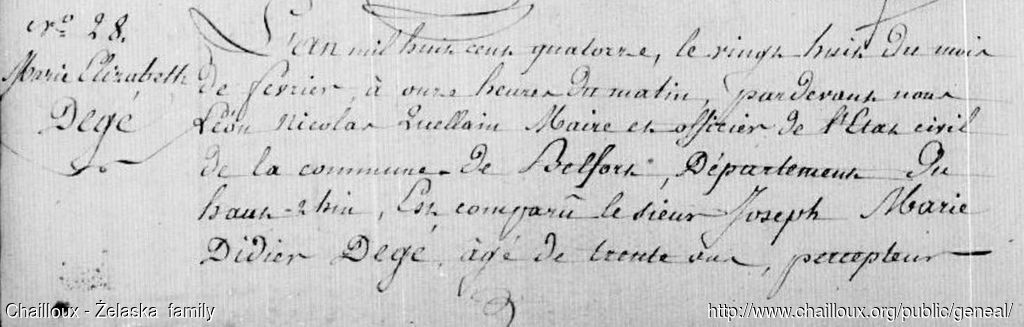 N.º 28.
Marie Elizabeth
Degé
L'an mil huit cent quatorze, le vingt huit du mois
de fevrier, à onze heures du matin, pardevant nous
Léon Nicolas Quellain Maire et officier de l'Etat civil
de la commune de Belfort, Département du
haut-rhin, Est comparû le sieur Joseph Marie
Didier Degé, âgé de trente ans, percepteur
Chailloux - Żelaska family
http://www.chailloux.org/public/geneal/